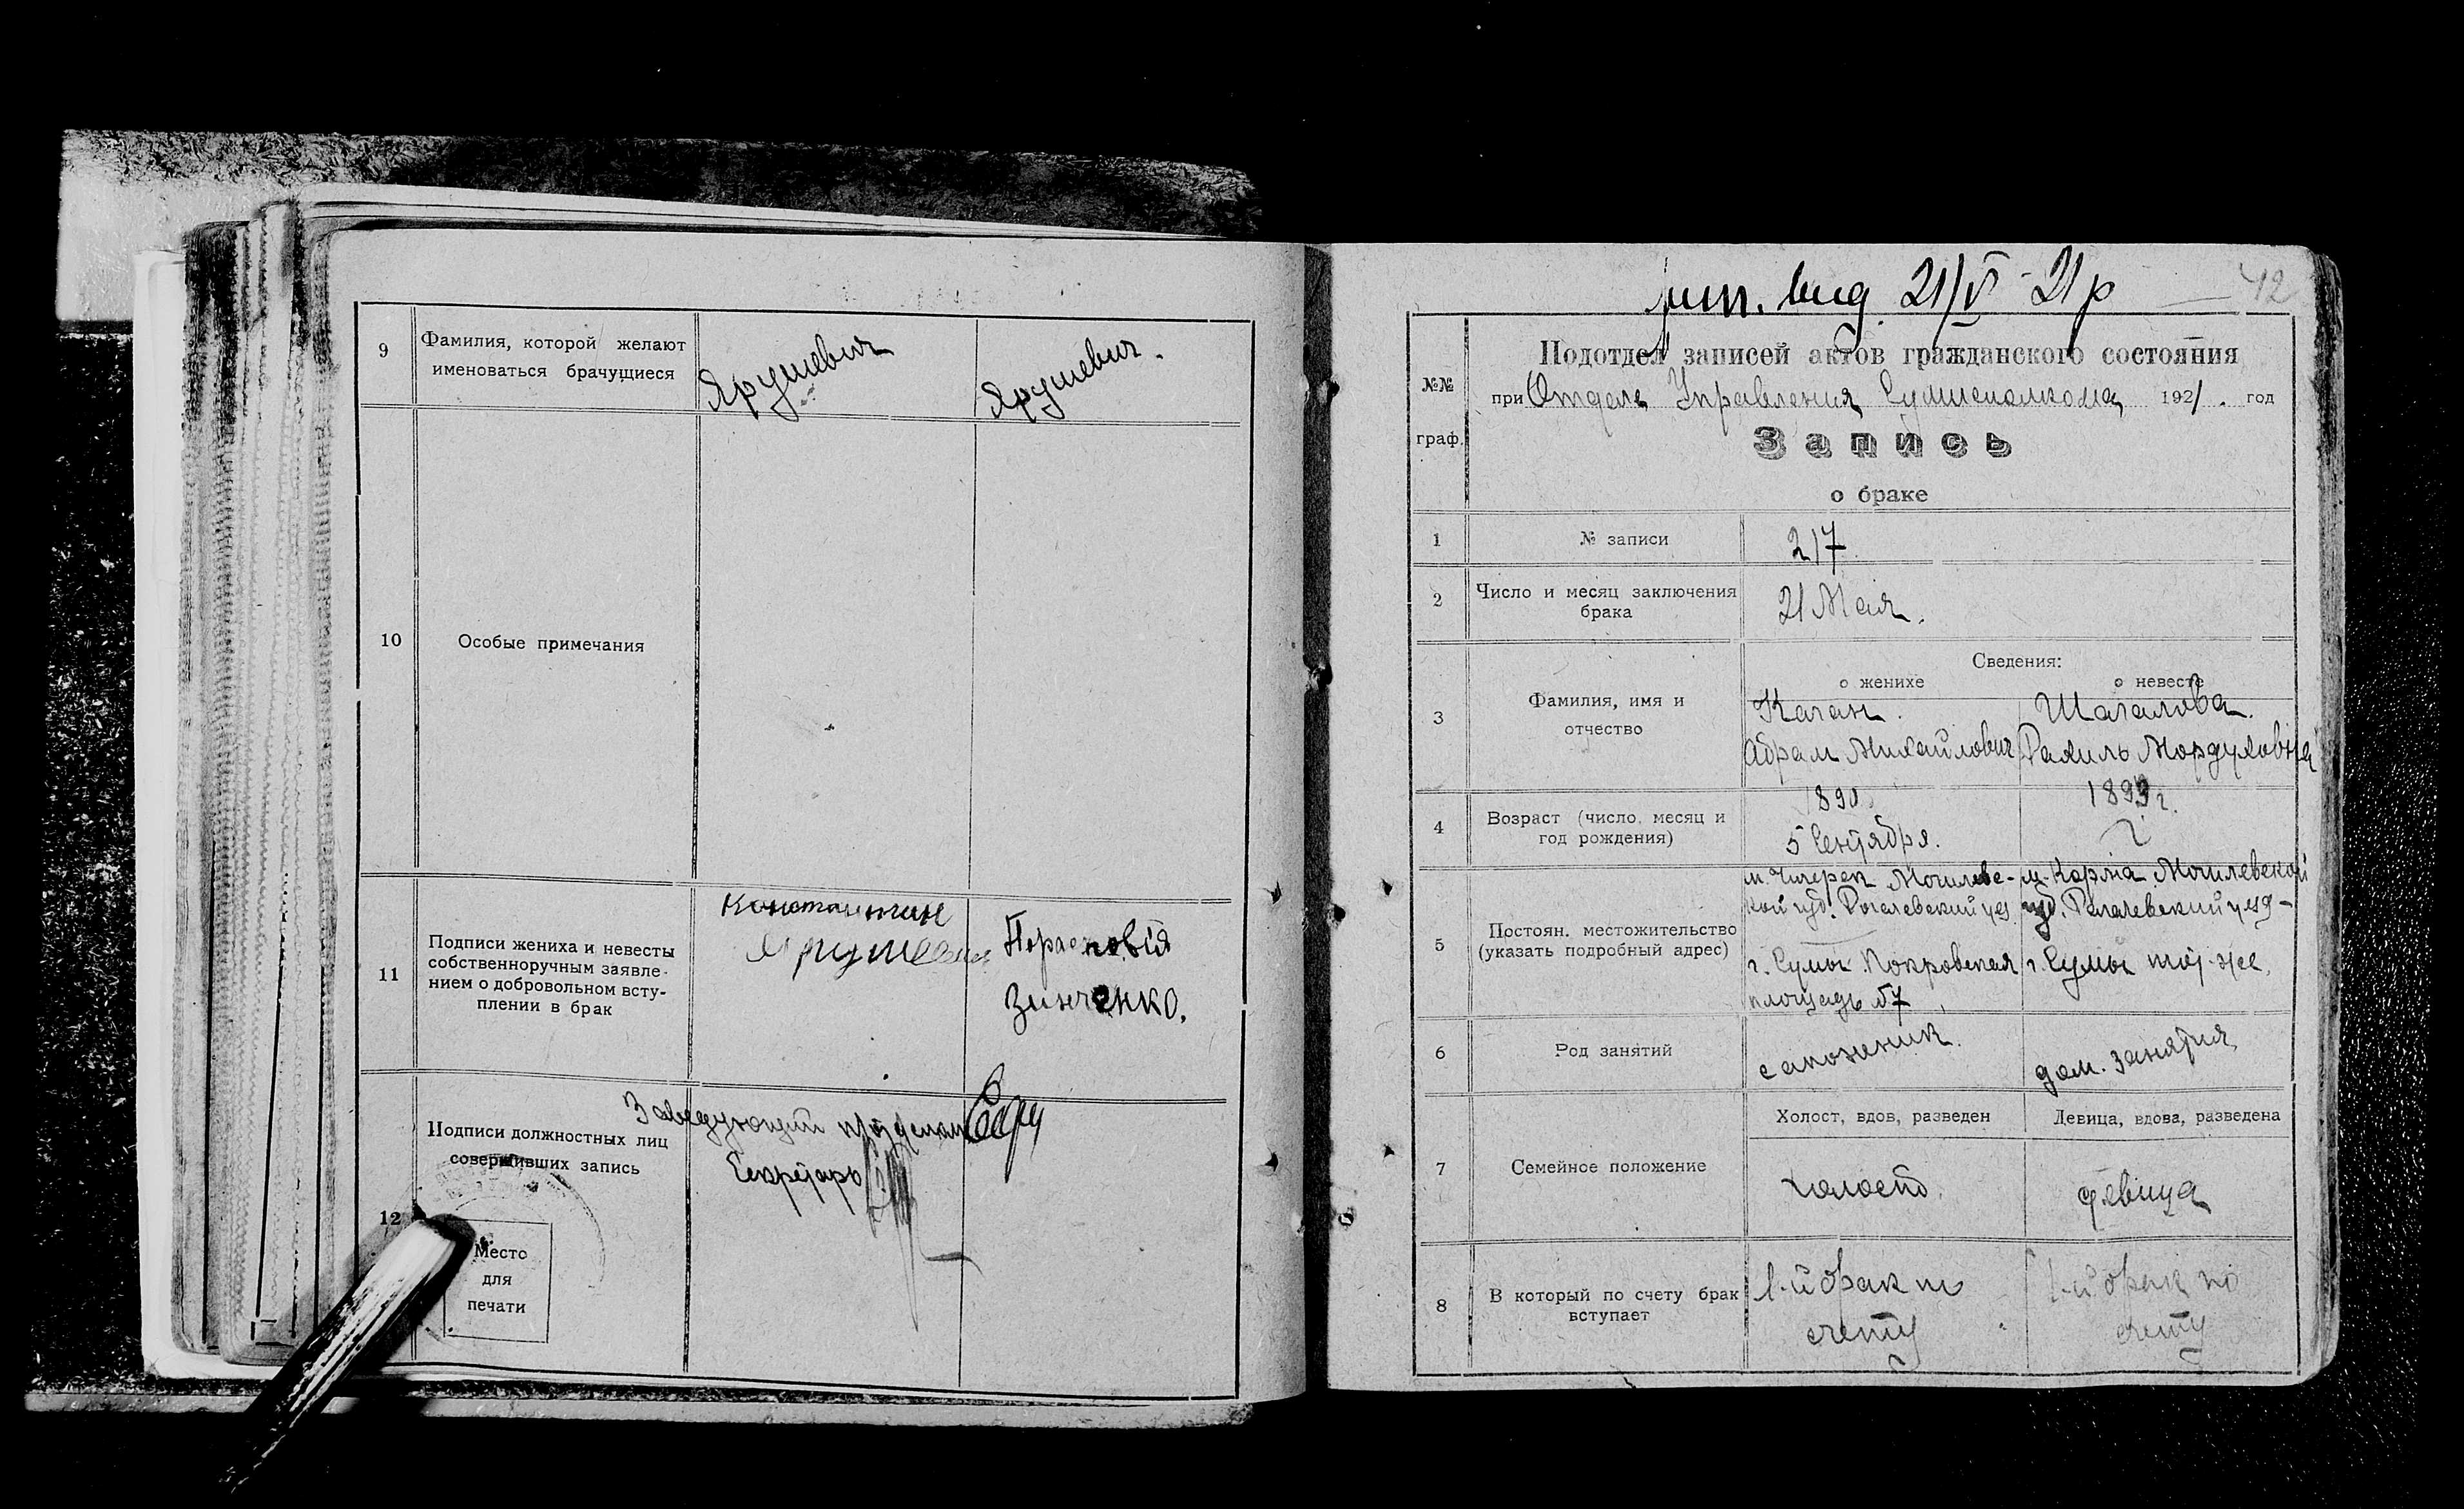 9
Фамилия, которой желают
именоваться брачущиеся
Ярушевич
Ярушевич.
10
Особые примечания
11
Подписи жениха и невесты
собственноручным заявле-
нием о добровольном всту-
плении в брак
Константин
Ярушевич
Порасковія
Зинченко.
Подписи должностных лиц
совершивших запись
Заведующий п/отделом
Секретарь
12
Место
для
печати
вид 21/V 21 р
42
№№
граф.
Подотдел записей актов гражданского состояния
при Отделе Управления Сумисполкома 1921. год
Запись
о браке
1
№ записи
217
2
Число и месяц заключения
брака
21 Мая.
3
Фамилия, имя и
отчество
Сведения:
о женихе
о невесте
Каган.
Шагалова.
Абрам Михайлович
Рахиль Мордуховна
4
Возраст (число, месяц и
год рождения)
1890
5 Сентября.
1899 г.
5
Постоян. местожительство
(указать подробный адрес)
м. Чигерек Могилевс-
кой губ. Рогачевский уез
г. Сумы Покровская
площадь №7
м. Корма Могилевской
губ. Рагачевский уезд-
г. Сумы тот-же.
6
Род занятий
сапожник.
дом. занятия
7
Семейное положение
Холост, вдов, разведен
Девица, вдова, разведена
холост.
девица
8
В который по счету брак
вступает
1-й брак по
счету
1-й брак по
счету